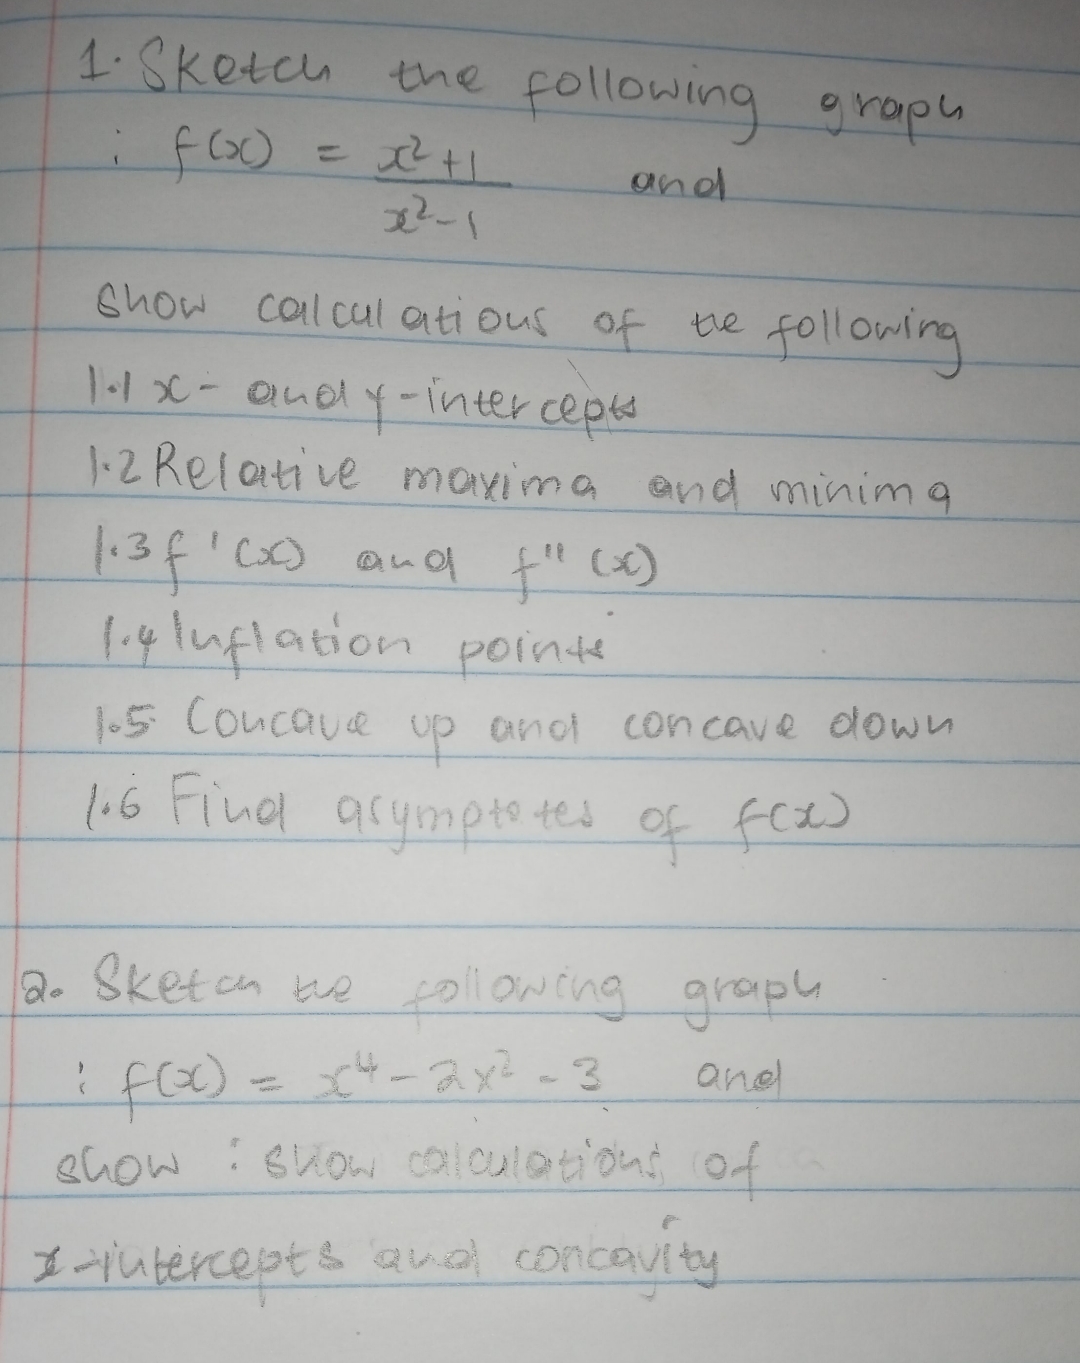 1. Sketch the following graph
: f(x) = x²+1 / x²-1 and
show calculations of the following
1.1 x- and y-intercepts
1.2 Relative maxima and minima
1.3 f'(x) and f''(x)
1.4 Inflation points
1.5 Concave up and concave down
1.6 Find asymptotes of f(x)
2. Sketch the following graph
: f(x) = x⁴ - 2x² - 3 and
show : show calculations of
x-intercepts and concavity